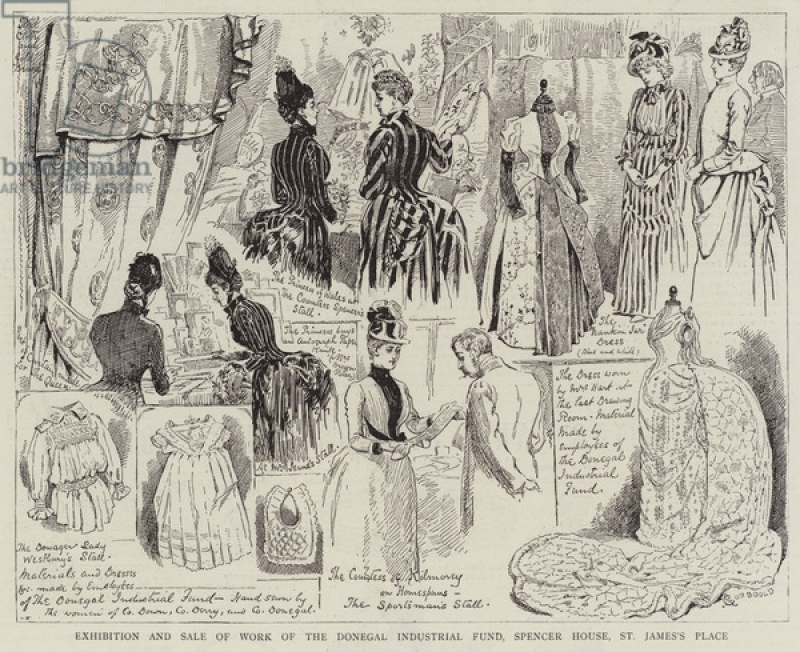 bridgeman
ART CULTURE HISTORY
The Princess of Wales at
The Countess Spencer's
Stall.
The Princess buys
an Autograph
At Mrs Stall.
Curtain
for The Queen
The
Nankin Jar
Dress
(Blue and White)
The Dress worn
by Mrs Hart at
the last Drawing
Room - Material
made by
employees of
The Donegal
Industrial
Fund.
The Dowager Lady
Westbury's Stall.
Materials and Dresses
&c. made by Employees
of The Donegal Industrial Fund - Hand sewn by
The women of Co. Down, Co. Derry, and Co. Donegal.
The Countess of Kilmorey
on Homespuns -
The Sportsman's Stall.
CORBOULD
EXHIBITION AND SALE OF WORK OF THE DONEGAL INDUSTRIAL FUND, SPENCER HOUSE, ST. JAMES'S PLACE